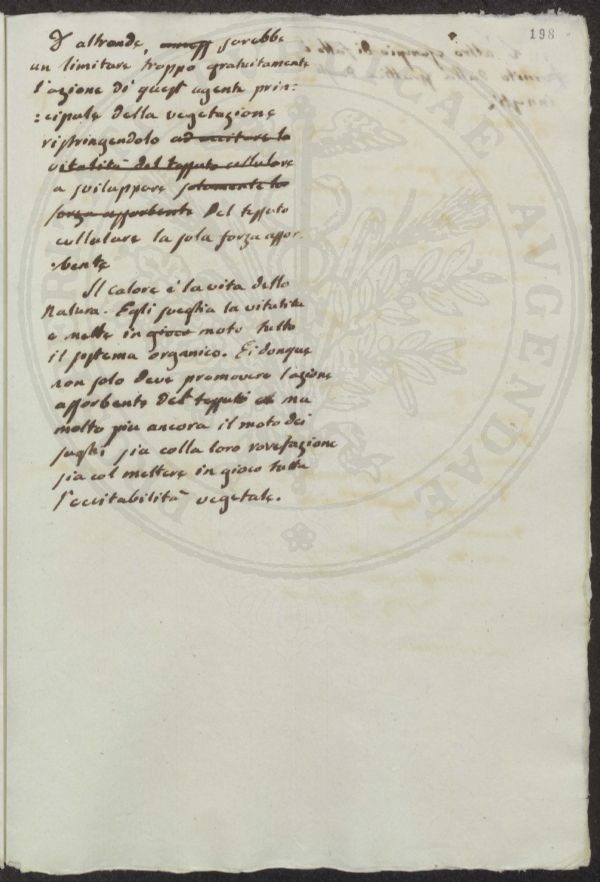 198
D'altronde, sarebbe
un limitare troppo gratuitamente
l'azione di quest agente prin:
:cipale della vegetazione
ristringendolo ad eccitare la
vitalità del tessuto cellulare
a sviluppare solamente la
forza assorbente Del tessuto
cellulare la sola forza assor-
:bente
Il calore è la vita della
Natura. Egli sveglia la vitalità
e mette in gioco moto tutto
il sistema organico. Ei donque
non solo deve promovere l'azione
assorbente del tessuto ma
molto piu ancora il moto dei
sughi sia colla loro rarefazione
sia col mettere in gioco tutta
l'eccitabilità vegetale.